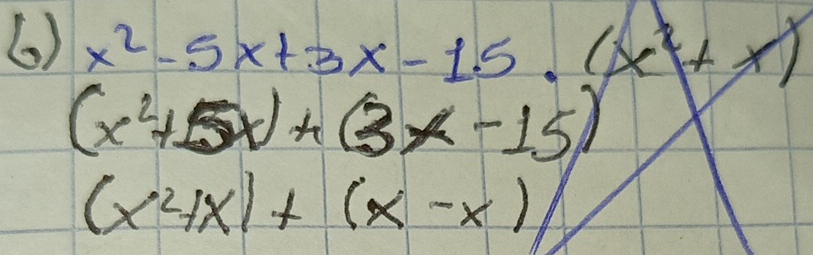 6) x² - 5x + 3x - 15 . (x² + x)
(x² + 5x) + (3x - 15)
(x² + x) + (x - x)